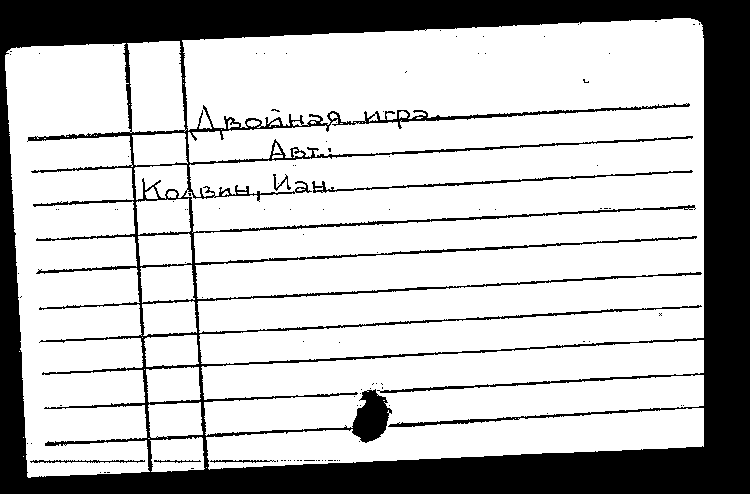 Двойная игра.
Авт.:
Колвин, Иан.